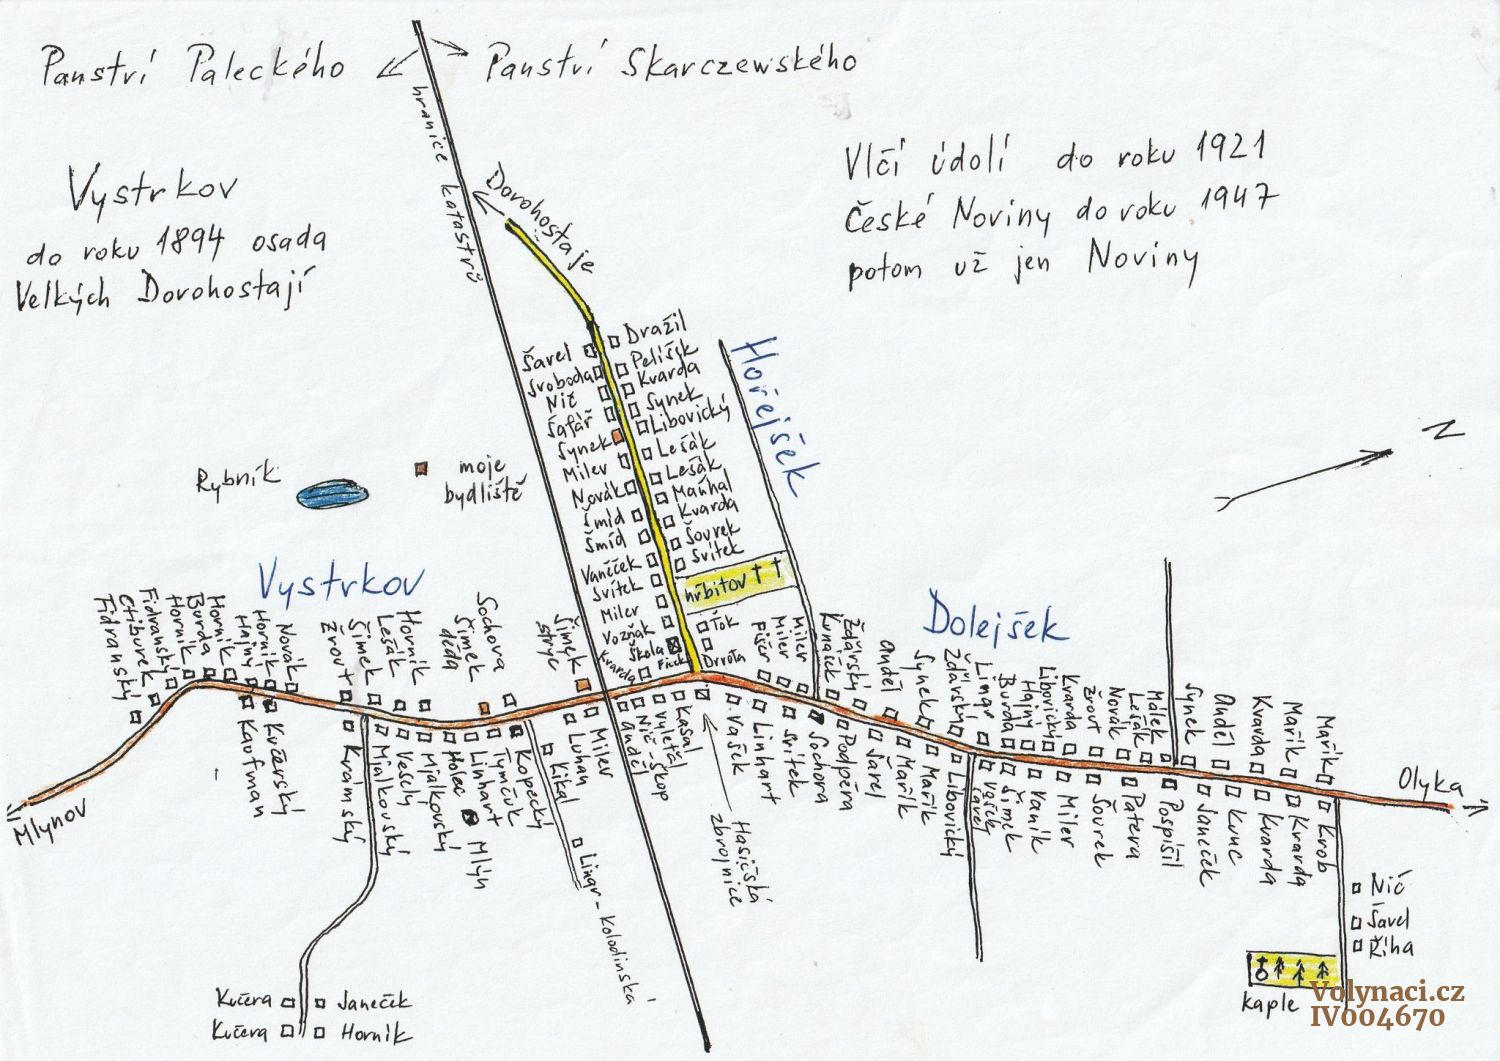 Panství Paleckého
Panství Skarczewského
hranice katastrů
Vystrkov
do roku 1894 osada
Velkých Dorohostají
Vlčí údolí do roku 1921
České Noviny do roku 1947
potom už jen Noviny
Dorohostaje
N
Rybník
moje
bydliště
Šavel
Svoboda
Nič
Šafář
Synek
Milev
Novák
Šmíd
Šmíd
Vaníček
Svítek
Milev
Vozňák
Škola
Kvarda
Dražil
Pelíšek
Kvarda
Synek
Libovický
Lešák
Lešák
Maňhal
Kvarda
Šourek
Svítek
hřbitov
Ťok
Hořejšek
Vystrkov
Fidranský
Ctiburek
Fidranský
Horník
Burda
Horník
Hajný
Horník
Novák
Žrout
Šimek
Lešák
Horník
Šimek
děda
Sochova
Šimek
strýc
Kaufman
Kučerský
Krámský
Mjalkovský
Veselý
Mjalkovský
Holec
Linhart
Tymčuk
Kopecký
Mlýn
Kikal
Lingr - Kolodinská
Luhan
Milev
Anděl
Nič - Skop
Vyletěl
Kasal
Hasičská
zbrojnice
Dolejšek
Pišér
Milev
Milev
Kunášek
Žďárský
Anděl
Synek
Žďárský
Lingr
Burda
Hajný
Libovický
Kvarda
Žrout
Novák
Lešák
Málek
Synek
Anděl
Kvarda
Mařík
Mařík
Vašek
Linhart
Svítek
Sochora
Podpěra
Šavel
Mařík
Mařík
Libovický
Šavel
Vašek
Šimek
Vaník
Milev
Šourek
Patera
Pospíšil
Janeček
Kunc
Kvarda
Kvarda
Krob
Mlynov
Olyka
Nič
Šavel
Říha
kaple
Kučera
Janeček
Kučera
Horník
Volynaci.cz
IV004670